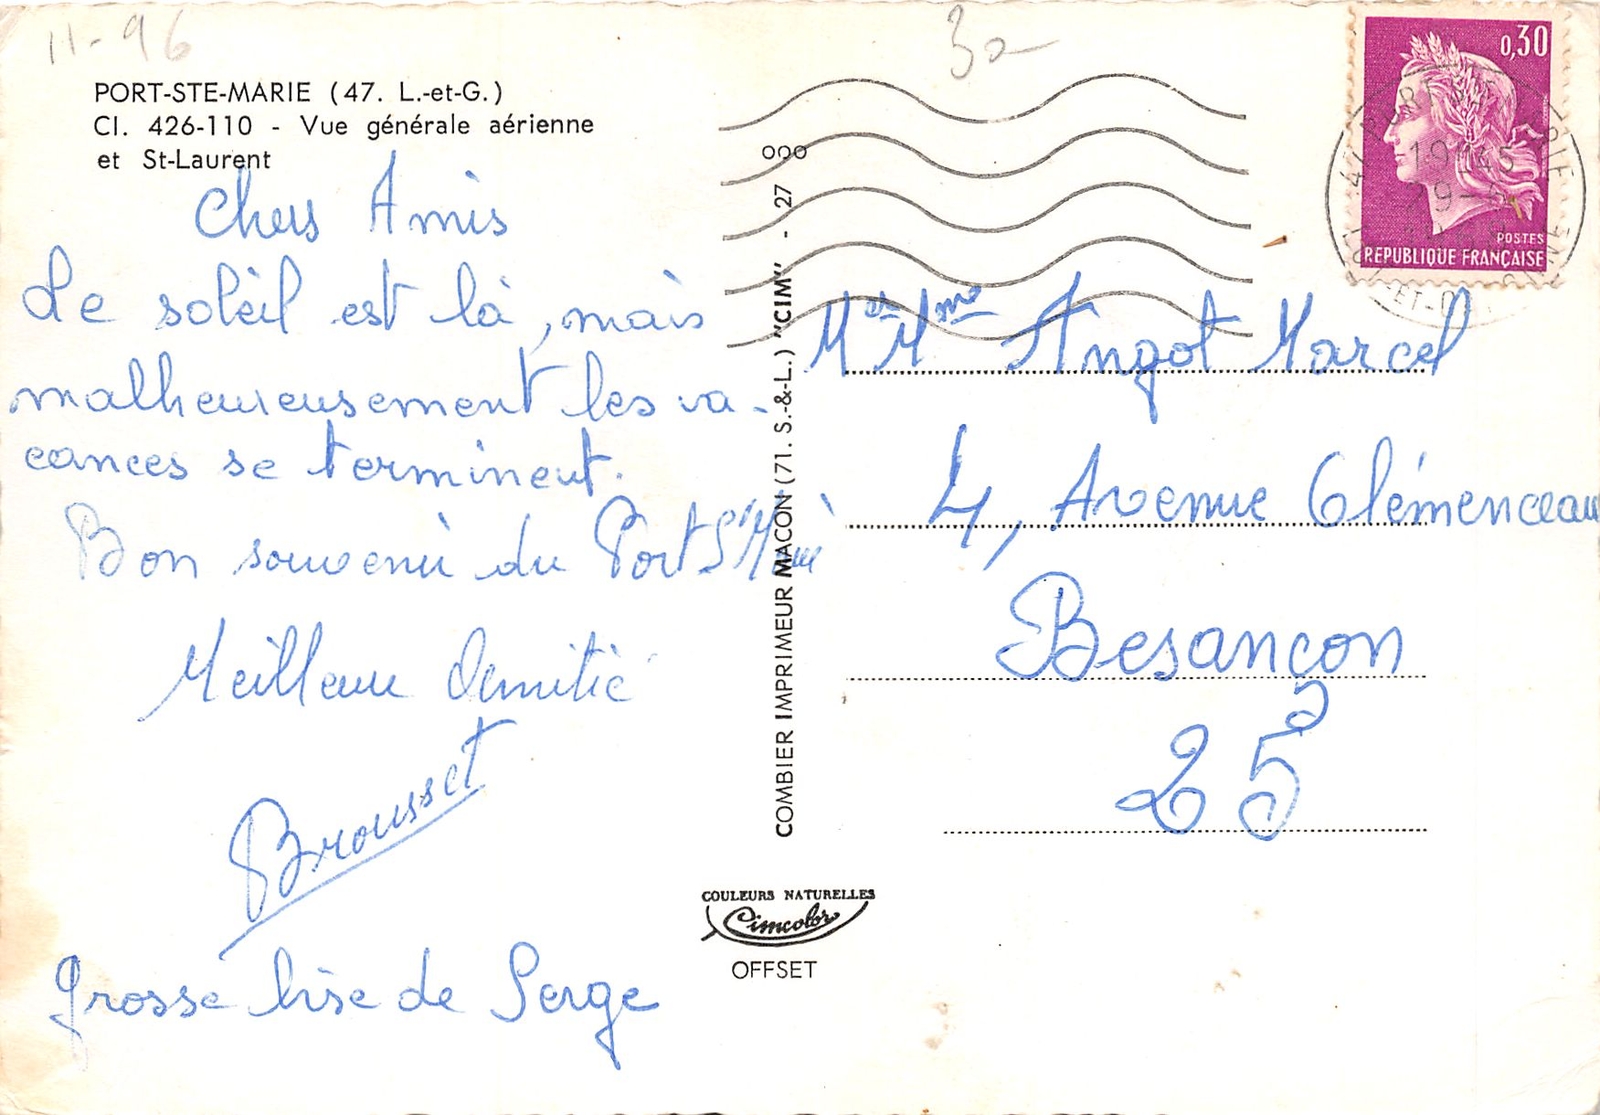 11-96
30
PORT-STE-MARIE (47. L.-et-G.)
CI. 426-110 - Vue générale aérienne
et St-Laurent
Chers Amis
Le soleil est là, mais
malheureusement les va-
cances se terminent.
Bon souvenir du Port Ste Marie
Meilleure Amitié
Brousset
Grosse bise de Serge
COMBIER IMPRIMEUR MACON (71. S.-&-L.) "CIM" - 27
COULEURS NATURELLES
Cimcolor
OFFSET
0,30
POSTES
REPUBLIQUE FRANÇAISE
47 PORT STE MARIE
LOT-ET-GARONNE
M et Mme Angot Marcel
4, Avenue Clémenceau
Besançon
25